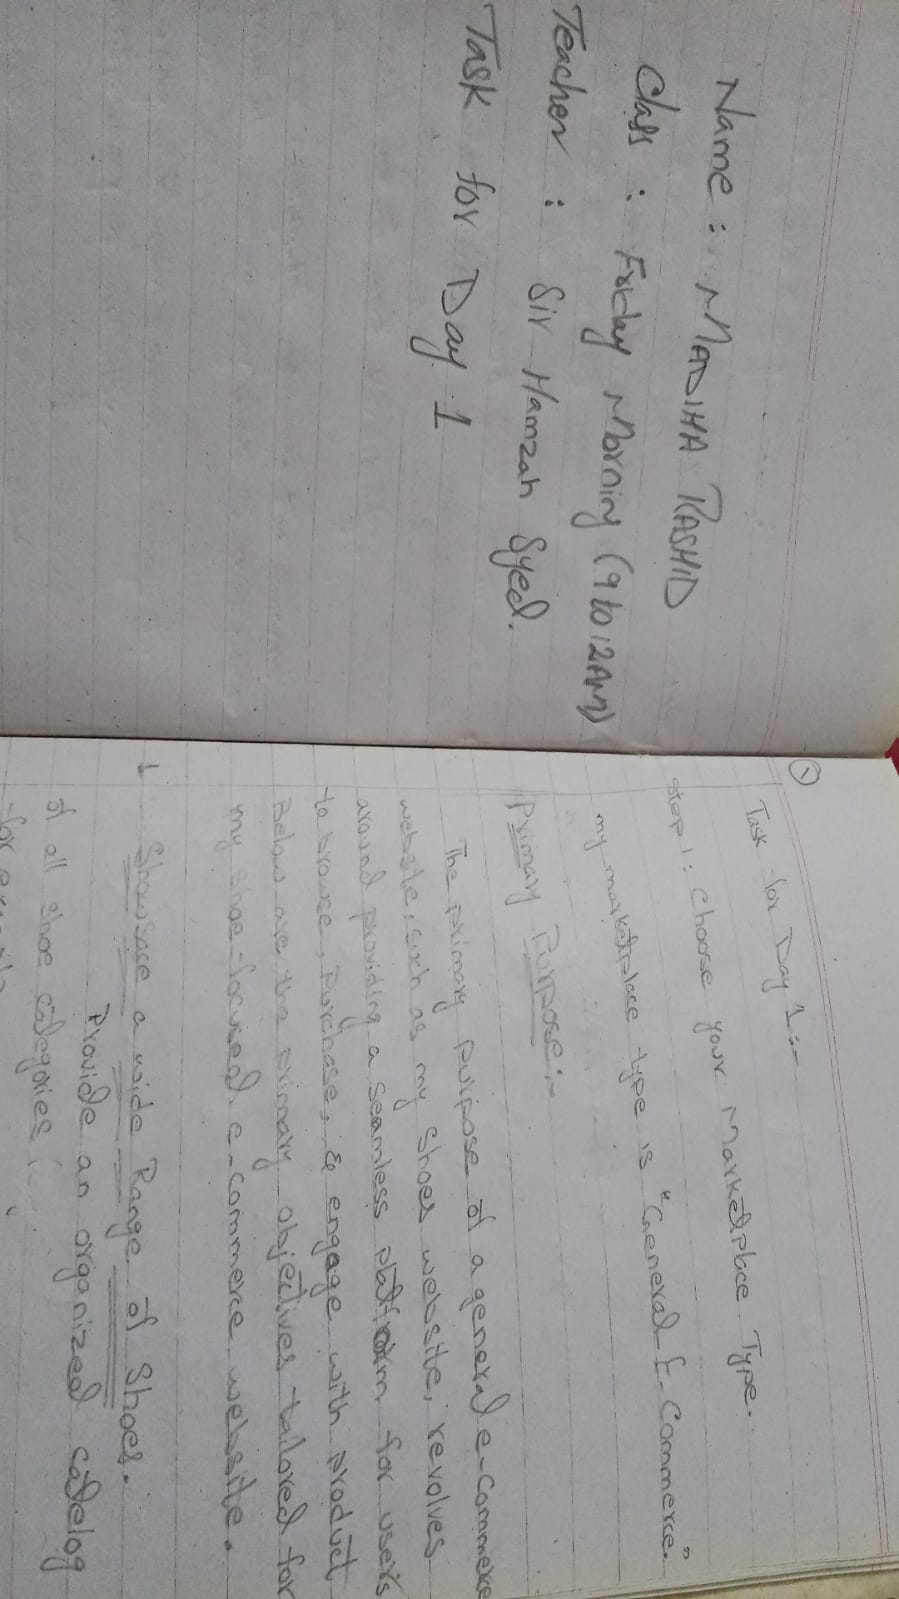 Name : MADIHA RASHID
Class : Friday Morning (9 to 12AM)
Teacher : Sir Hamzah Syed.
Task for Day 1
1
Task for Day 1:-
Step 1: choose your Marketplace Type.
my marketplace type is "General E-Commerce."
Primary Purpose:-
The primary purpose of a general e-commerce
website, such as my shoes website, revolves
around providing a seamless platform for users
to browse, Purchase, & engage with product
Below are the primary objectives tailored for
my shoe-focused e-commerce website.
Showcase a wide Range of Shoes.
Provide an organized catelog
of all shoe categories (